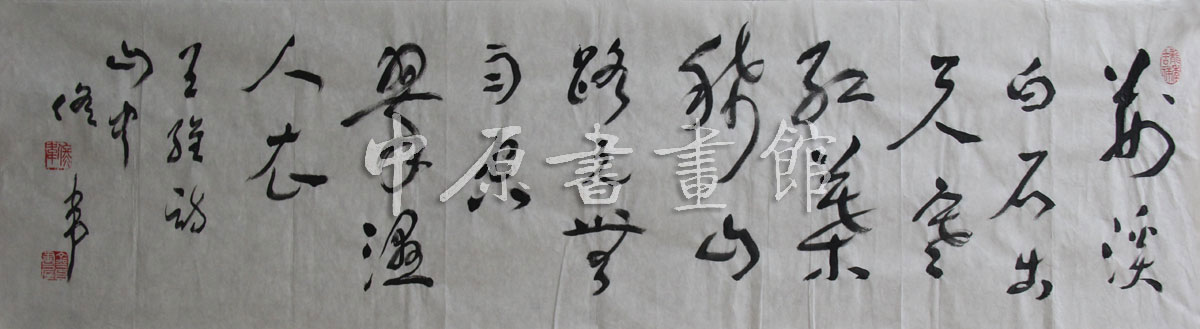 荆溪
白石出
天寒
红葉
稀山
路元無
雨空
翠濕
人衣
王维诗
山中
中原書畫館